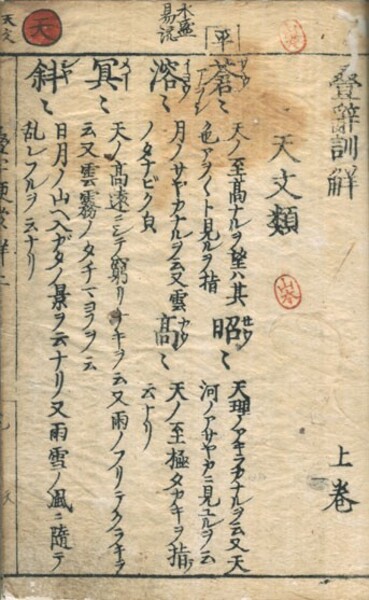 疊辭訓解　上巻
天文類
平
蒼〻
天ノ至高ナルヲ望ハ其
色アヲ〱ト見ルヲ指
昭〻
天理ノアキラカナルヲ云又天
河ノアサヤカニ見ユルヲ云
溶〻
月ノサヤカナルヲ云又雲
ノタナビク皃
高〻
天ノ至極タカキヲ指
云ナリ
冥〻
天ノ高遠ニシテ窮リナキヲ云又雨ノフリテクラキヲ
云又雲霧ノタチマヨフヲ云
斜〻
日月ノ山ヘ入ガタノ景ヲ云ナリ又雨雪ノ風ニ隨テ
乱レフルヲ云ナリ
天
天文